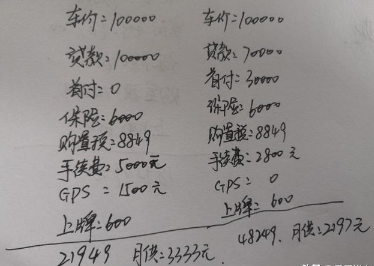 车价=100000
贷款:100000
首付:0
保险:6000
购置税:8849
手续费:5000元
GPS=1500元
上牌:600
21949 月供:3333元
车价=100000
贷款:70000
首付:30000
保险:6000
购置税:8849
手续费=2800元
GPS:0
上牌:600
48249、月供:2197元